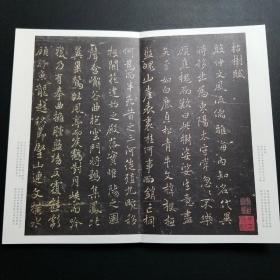 枯樹賦
殷仲文風流儒雅海內知名代異
時移出為東陽太守常忽忽不樂
顧庭槐而歎曰此樹婆娑生意盡
矣至如白鹿貞松青牛文梓根柢
盤魄山崖表裏桂何事而銷亡桐
何為而半死昔之三河徙殖九畹移
根開花建始之殿落實睢陽之園
聲含嶰谷曲抱雲門將雛集鳳比
翼巢鴛臨風亭而唳鶴對月峽而吟
猨乃有拳曲擁腫盤坳反覆熊彪
顧盼魚龍起伏節竪山連文橫水